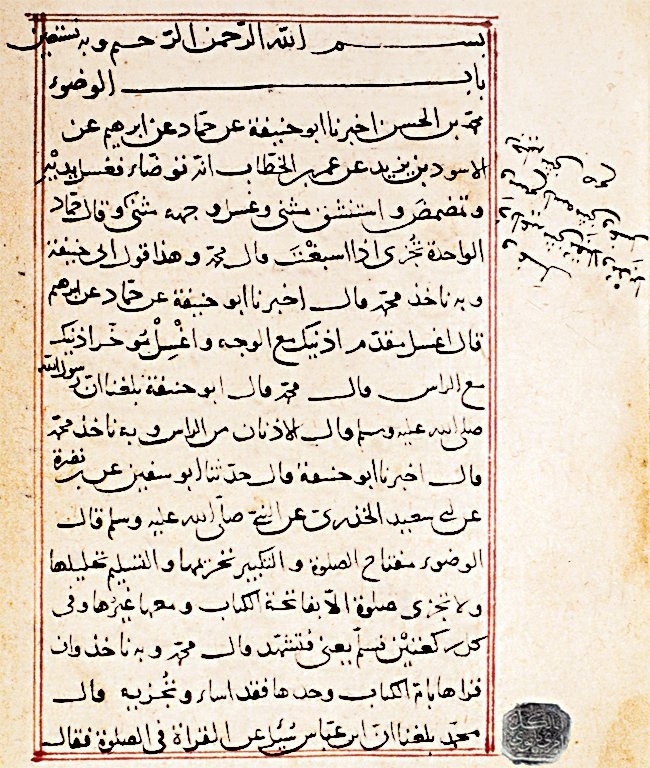 بسم الله الرحمن الرحيم وبه نستعين
باب الوضوء
محمد بن الحسن اخبرنا ابو حنيفة عن حمّاد عن ابرهيم عن
الاسود بن يزيد عن عمر بن الخطاب انه توضاء فغسل يديْه
وتمضمض واستنشق مثنى وغسل وجهه مثنى وقال حمّاد
الواحدة تُجْزى اذا اسبغْتَ قال محمد وهذا قول ابى حنيفة
وبه ناخذ محمّد قال اخبرنا ابو حنيفة عن حمّاد عن ابرهيم
قال اغسل مقدّم اذنيك مع الوجه واغْسِلْ مُوخّر اذنيك
مع الراس قال محمّد قال ابو حنيفة بلغنا انّ رسول الله
صلى الله عليه وسلم قال الاذنان من الراس وبه ناخذ محمّد
قال اخبرنا ابو حنيفة قال حدّثنا ابو سفين عن ابى نضرة
عن ابى سعيد الخدرى عن النبى صلّى الله عليه وسلم قال
الوضوء مفتاح الصلوة والتكبير تحريمها والتسليم تحليلها
ولا تجزى صلوة الّا بفاتحة الكتاب ومعها غيرُها وفى
كل ركعتيْن فسلّم يعنى فتشهّد قال محمّد وبه ناخذ وان
قراها بامّ الكتاب وحدها فقد اساء وتُجزيه قال
محمّد بلغنا انّ ابن عبّاس سُئل عن القراة فى الصلوة فقال